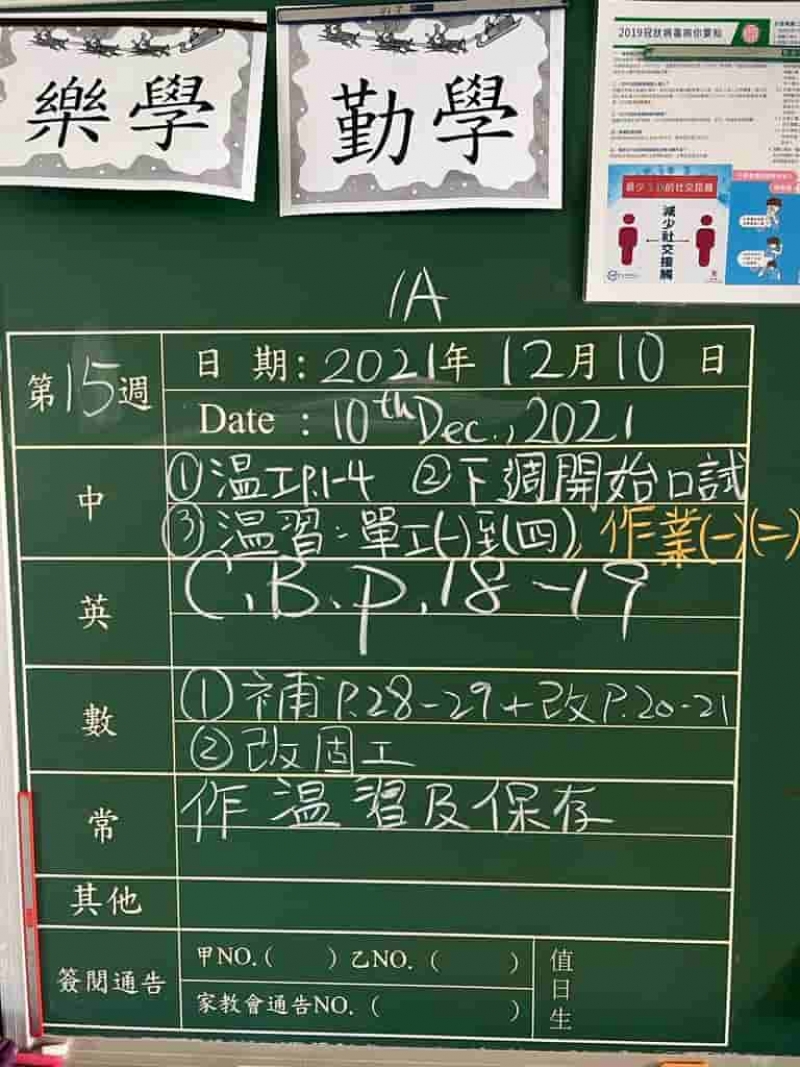 樂學
勤學
2019冠狀病毒病你要知
減少社交接觸
1A
第15週
日 期：2021年 12月 10 日
Date : 10th Dec., 2021
中
①温工P.1-4 ②下週開始口試
③温習：單工(一)到(四), 作業(一)(二)
英
C.B.P.18-19
數
①補P.28-29+改P.20-21
②改固工
常
作温習及保存
其他
簽閱通告
甲NO.( ) 乙NO.( )
家教會通告NO.( )
值日生